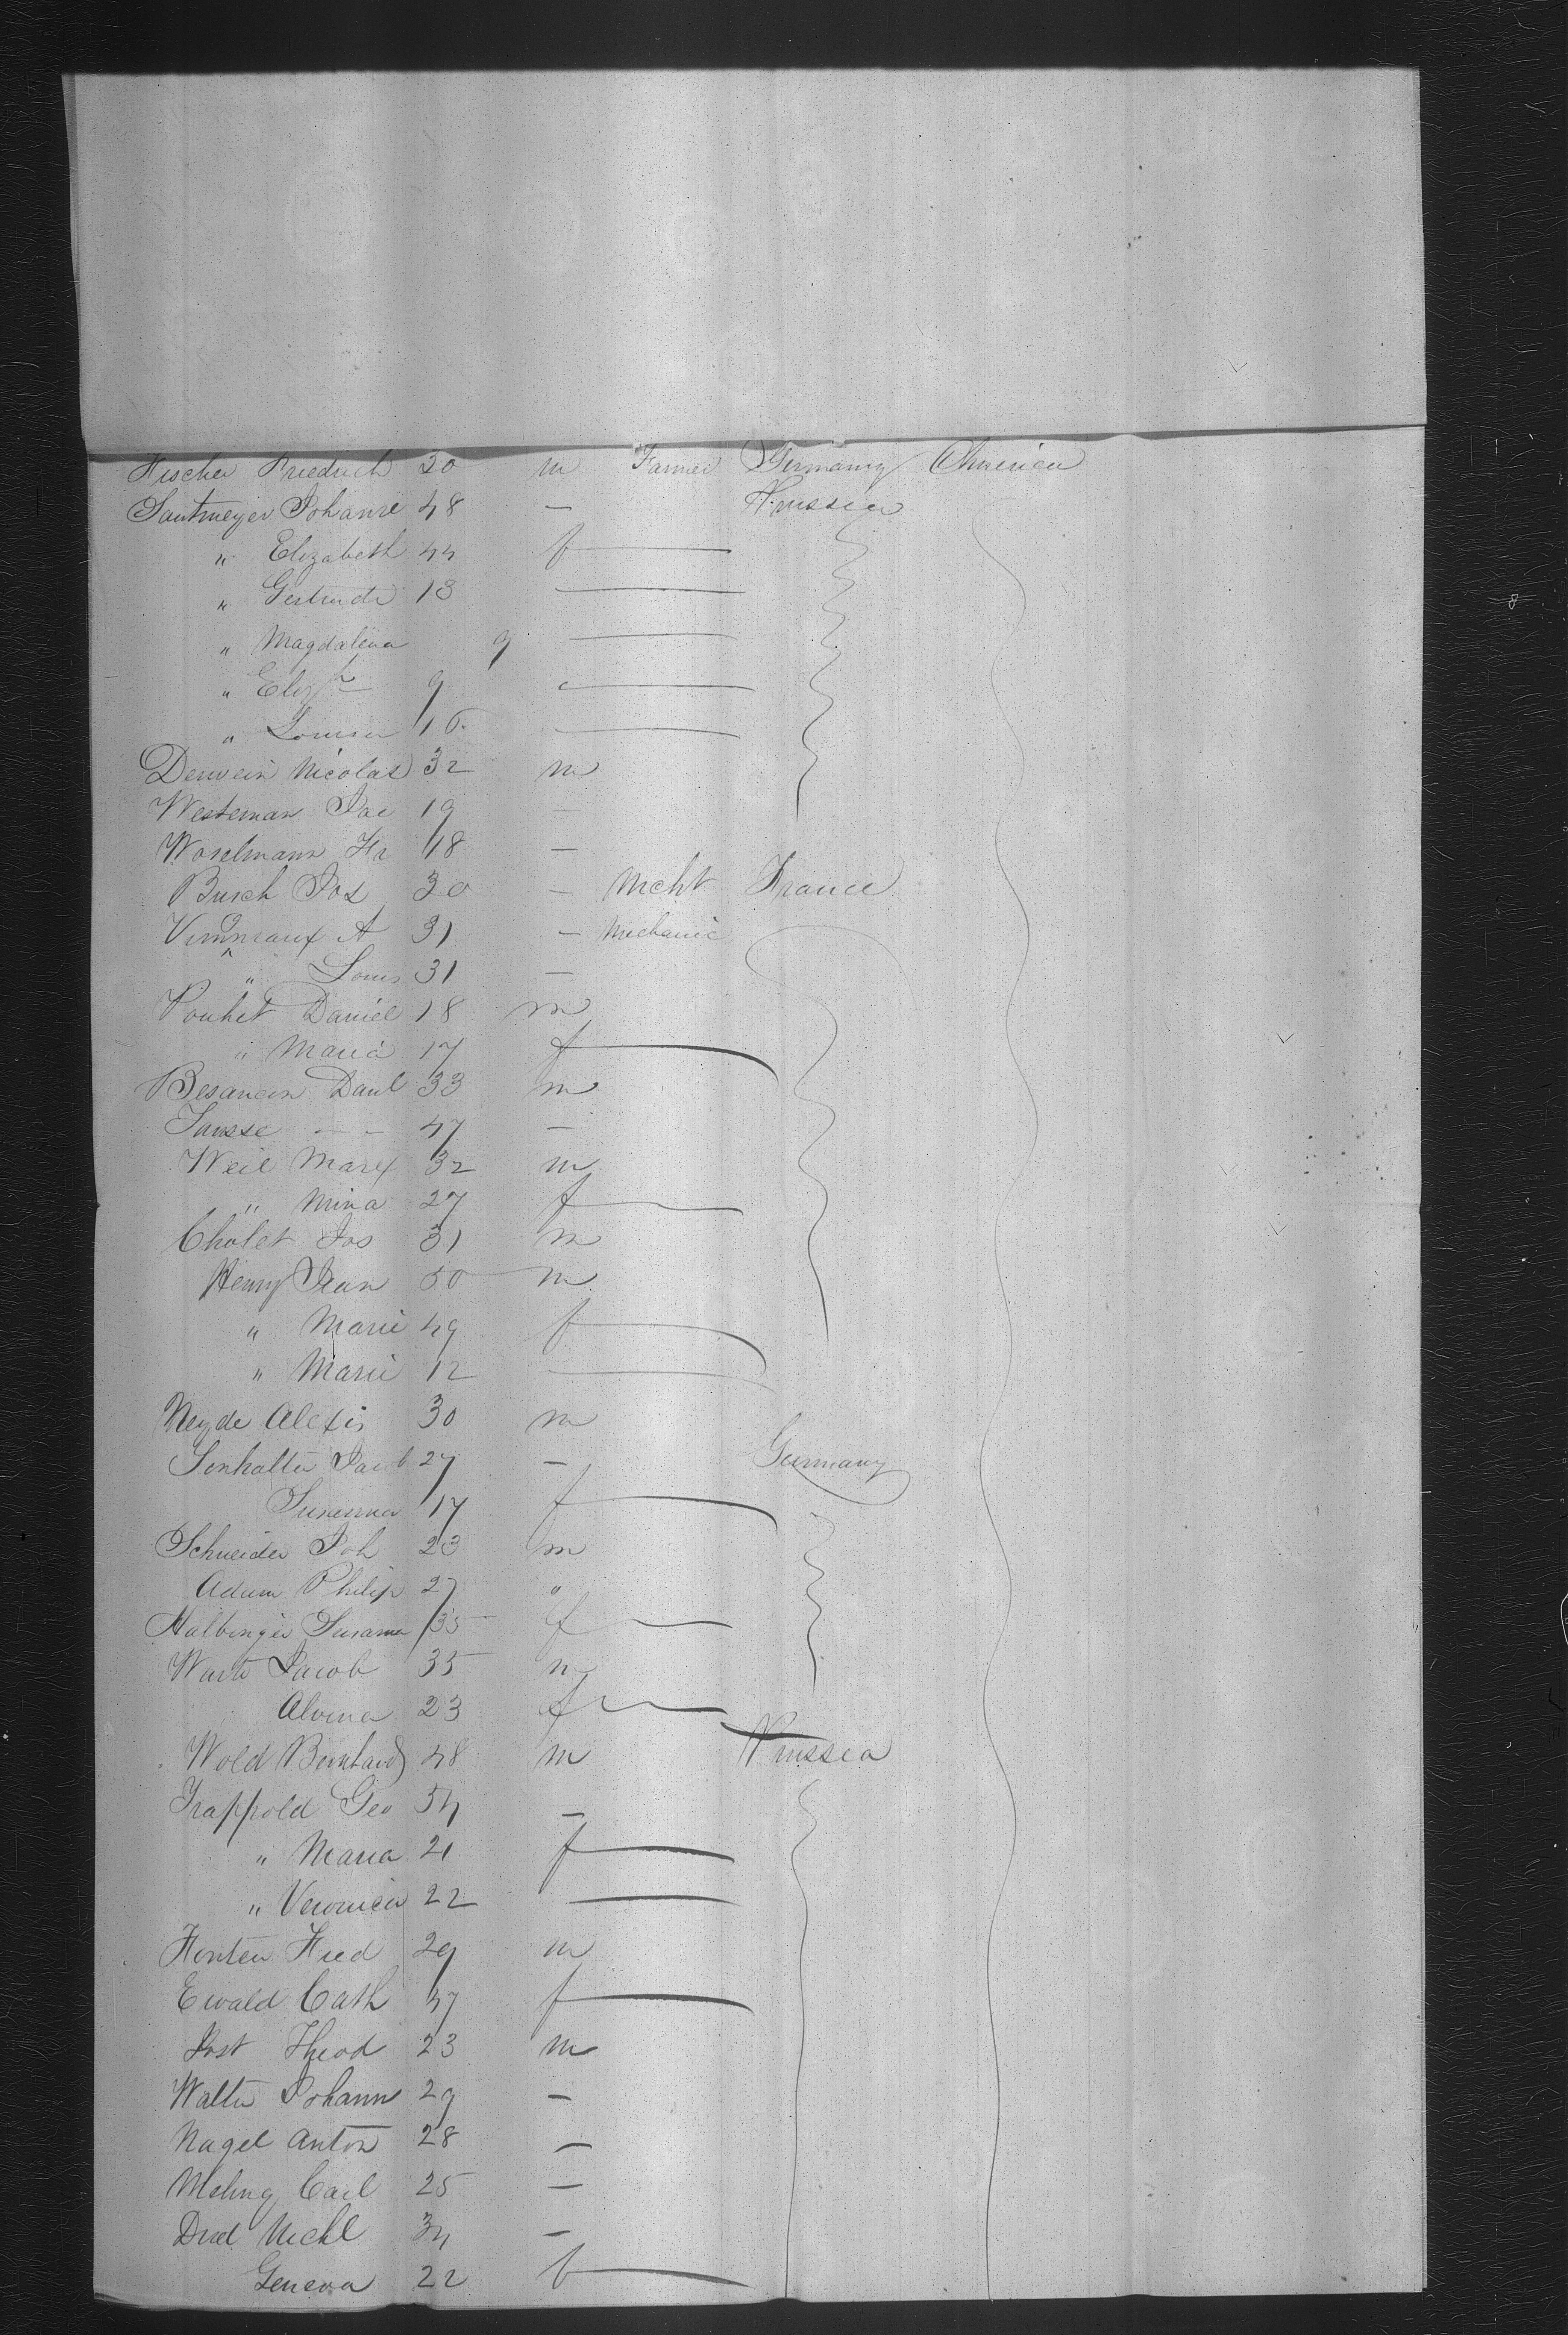 Fischer Friedrich 20 m Farmer Germany America
Santmeyer Johanne 48 — Prussia
" Elizabeth 44 f
" Gertrude 13
" Magdalena 9
" Eliz h 9
" Louisa 16
Derwein Nicolas 32 m
Westeman Jac 19 —
Woselmann Fr 18 —
Busch Jos 30 — Mcht France
A 31 — Mechanic
" Louis 31 —
Pouhet Daniel 18 m
" Maria 17 f
Besancon Danl 33 m
Jansse — — 47 —
Weil Marx 32 m
" Mina 27 f
Cholet Jos 31 m
Henry Jean 50 m
" Marie 49 f
" Marie 12
Neyde Alexis 30 m
Senhalter Jacob 27 — Germany
Susanna 17 f
Schneider Joh 23 m
Adam Philip 27 "
Halbinger Susanna 35 f
Jacob 35 m
Alvina 23 f
Wold Bernhard 48 m Prussia
Trappold Geo 54 —
" Maria 21 f
" Veronica 22
Fred 29 m
Ewald Cath 47 f
Jost Theod 23 m
Walter Johann 29 —
Nagel Anton 28 —
Carl 25 —
Michl 34 —
Geneva 22 f